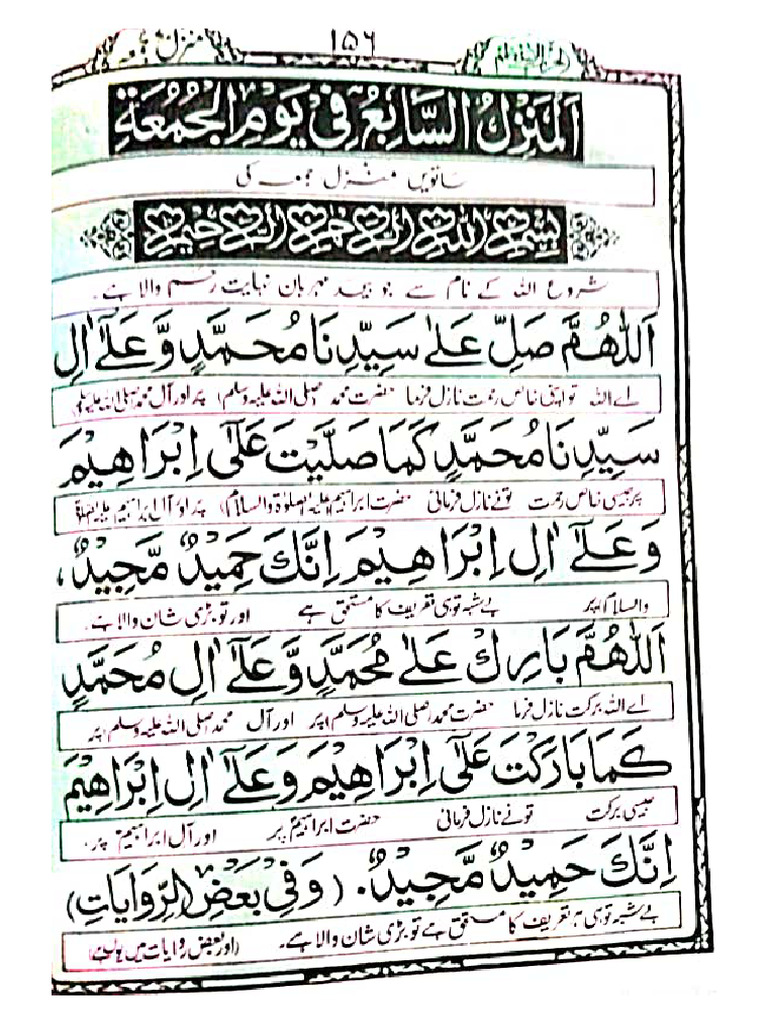 منزل
۱۵۶
الحزب الاعظم
اَلْمَنْزِلُ السَّابِعُ فِیْ یَوْمِ الْجُمُعَةِ
ساتویں منزل جمعہ کی
بِسْمِ اللّٰهِ الرَّحْمٰنِ الرَّحِیْمِ
شروع اللہ کے نام سے جو بیحد مہربان نہایت رحم والا ہے۔
اَللّٰهُمَّ صَلِّ عَلٰی سَیِّدِنَا مُحَمَّدٍ وَّعَلٰٓی اٰلِ
اے اللہ تو اپنی خاص رحمت نازل فرما حضرت محمد (صلی اللہ علیہ وسلم) پر اور آل محمد (صلی اللہ علیہ وسلم)
سَیِّدِنَا مُحَمَّدٍ کَمَا صَلَّیْتَ عَلٰٓی اِبْرَاهِیْمَ
پر جیسی خاص رحمت تونے نازل فرمائی حضرت ابراہیم (علیہ الصلوٰۃ والسلام) پر اور آل ابراہیم علیہ الصلوٰۃ
وَعَلٰٓی اٰلِ اِبْرَاهِیْمَ اِنَّكَ حَمِیْدٌ مَّجِیْدٌ،
والسلام پر بے شبہ تو ہی تعریف کا مستحق ہے اور تو بڑی شان والا ہے۔
اَللّٰهُمَّ بَارِكْ عَلٰی مُحَمَّدٍ وَّعَلٰٓی اٰلِ مُحَمَّدٍ
اے اللہ برکت نازل فرما حضرت محمد (صلی اللہ علیہ وسلم) پر اور آل محمد (صلی اللہ علیہ وسلم) پر
کَمَا بَارَکْتَ عَلٰٓی اِبْرَاهِیْمَ وَعَلٰٓی اٰلِ اِبْرَاهِیْمَ
جیسی برکت تونے نازل فرمائی حضرت ابراہیم پر اور آل ابراہیم پر،
اِنَّكَ حَمِیْدٌ مَّجِیْدٌ۔ (وَفِیْ بَعْضِ الرِّوَایَاتِ)
بے شبہ تو ہی ہر تعریف کا مستحق ہے تو بڑی شان والا ہے۔ (اور بعض روایات میں یوں ہے)